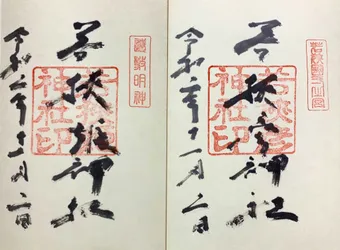 若狭国一之宮
若狭彦神社
若狭彦
神社印
令和二年十一月二日
遠敷明神
若狭姫神社
若狭姫
神社印
令和二年十一月二日